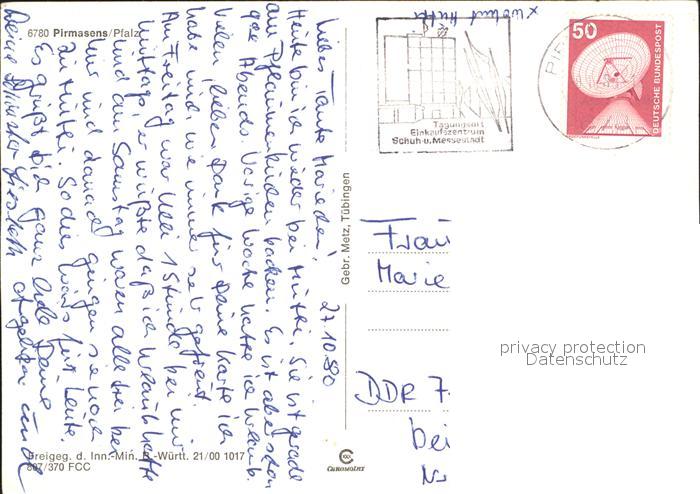 6780 Pirmasens/Pfalz
27.10.80
Liebes Tante Mariechen!
Heute bin ich wieder bei Mutti. Sie ist gerade
am Pflaumenkuchen backen. Es ist aber schon
Abends. Vorige Woche hatte ich Urlaub.
Vielen lieben Dank für Deine Karte ich
habe und wie immer sehr gefreut.
Am Freitag war Uli 1 Stunde bei mir
mittags, er wußte daß ich Urlaub hatte
und am Samstag waren alle drei bei
mir und danach gingen sie noch
zu Mutti. So dies wär's für heute.
Es grüßt Dich ganz lieb Deine
x
Tagungsort
Einkaufszentrum
Schuh u. Messestadt
50
DEUTSCHE BUNDESPOST
Gebr. Metz, Tübingen
Frau
Marie
DDR 7
bei
privacy protection
Datenschutz
Freigeg. d. Inn.-Min. B.-Württ. 21/00 1017
807/370 FCC
CHROMOLUX